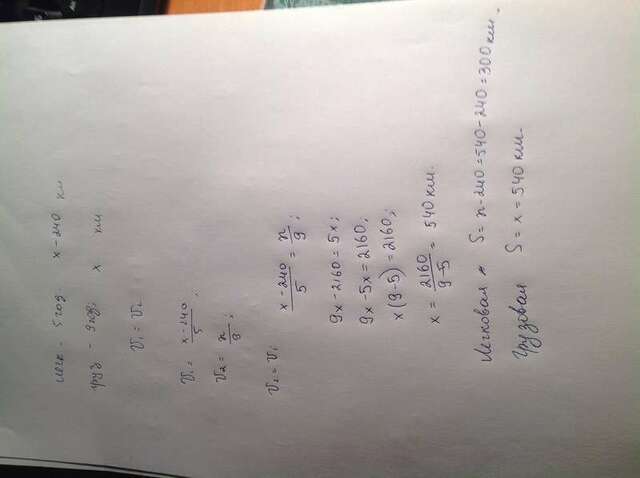 легк - 5 год. x - 240 км
груз - 9 год; x км
V₁ = V₂
V₁ = x - 240 / 5 ;
V₂ = x / 9 ;
V₂ = V₁
x - 240 / 5 = x / 9 ;
9x - 2160 = 5x;
9x - 5x = 2160;
x(9-5) = 2160;
x = 2160 / 9-5 = 540 км.
Легковая S = x - 240 = 540 - 240 = 300 км.
Грузовая S = x = 540 км.